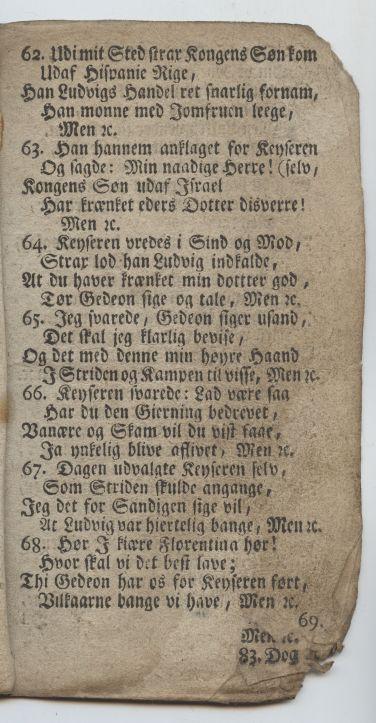 62. Udi mit Sted strax Kongens Søn kom
Udaf Hispanie Rige,
Han Ludvigs Handel ret snarlig fornam,
Han monne med Jomfruen leege,
Men ꝛc.
63. Han hannem anklaget for Keyseren
Og sagde: Min naadige Herre! (selv,
Kongens Søn udaf Israel
Har krænket eders Dotter disverre!
Men ꝛc.
64. Keyseren vredes i Sind og Mod,
Strax lod han Ludvig indkalde,
At du haver krænket min dottter god,
Tør Gedeon sige og tale, Men ꝛc.
65. Jeg svarede, Gedeon siger usand,
Det skal jeg klarlig bevise,
Og det med denne min høyre Haand
I Striden og Kampen til visse, Men ꝛc.
66. Keyseren svarede: Lad være saa
Har du den Gierning bedrevet,
Vanære og Skam vil du vist faae,
Ja ynkelig blive aflivet, Men ꝛc.
67. Dagen udvalgte Keyseren selv,
Som Striden skulde angange,
Jeg det for Sandigen sige vil,
At Ludvig var hiertelig bange, Men ꝛc.
68. Hør I kiære Florentina hør!
Hvor skal vi det best lave;
Thi Gedeon har os for Keyseren ført,
Vilkaarne bange vi have, Men ꝛc.
69.
Men ꝛc.
83. Dog